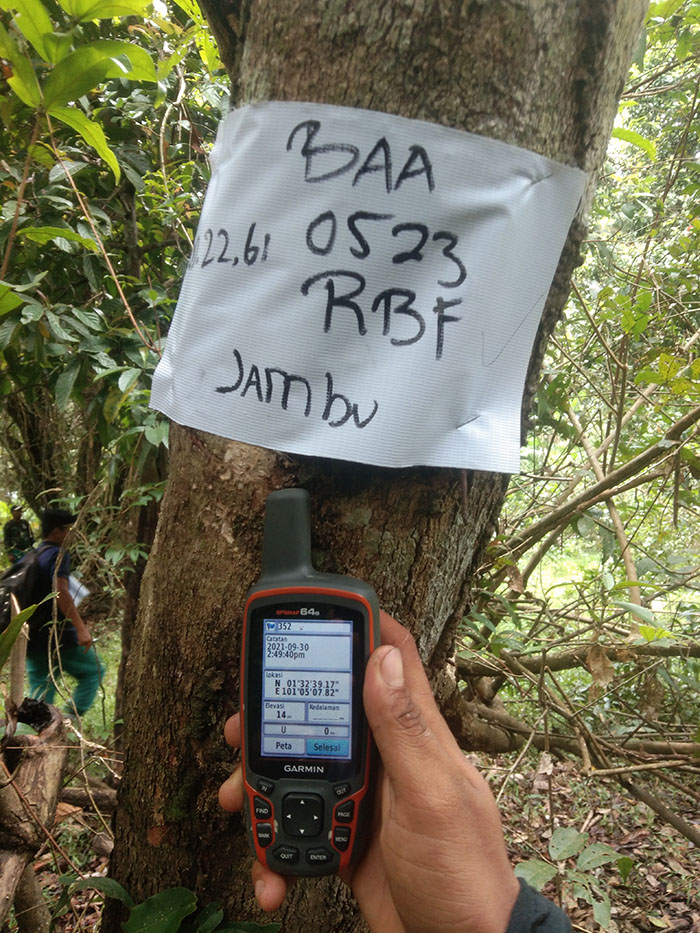 BAA
22,61 0523
RBF
Jambu
GPSMAP 64s
352
Catatan
2021-09-30
2:49:40pm
Lokasi
N 01°32'39.17"
E 101°05'07.82"
Elevasi Kedalaman
14 m
U 0m
Peta Selesai
GARMIN
IN OUT
FIND PAGE
MARK MENU
QUIT ENTER